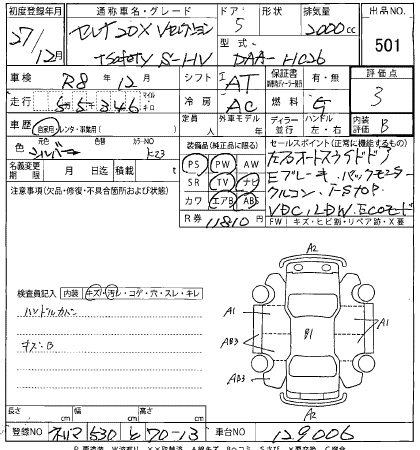 初度登録年月 通称車名・グレード ドア 形状 排気量 出品NO.
27/12月 セレナ 20X Vセレクション 5 2000cc 501
+Safety S-HV 型式 DAA-HC26
車検 R8年12月 シフト AT 保証書 有・無 評価点
走行 55346 冷房 AC 燃料 G 3
車歴 自家用・レンタ・事業用( ) 定員 外車モデル年 ディーラー 並行 ハンドル 左・右 内装評価 B
色 元色 シルバー カラーNO K23 装備品(純正品に限る) セールスポイント(正常に機能するもの)
PS PW AW 左右オートスライドドア
名義変更期限 月 日迄 積載 t SR TV ナビ Eブレーキ、バックモニター
注意事項(欠品・修復・不具合箇所および状態) カワ エアB ABS クルコン、I-STOP
R券 11810 VDC,LDW,ECOモード
FW キズ・ヒビ割・リペア跡・X要
A2
検査員記入 内装 キズ・汚レ・コゲ・穴・スレ・キレ
ハンドルカバー
A1 B1 A1
キズB
AB3
AB3
A2
長さ cm 幅 cm 高さ cm
登録NO ネリマ 530 と 70-13 車台NO 129006